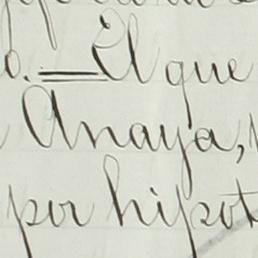 o. = El que
Anaya,
por hipot